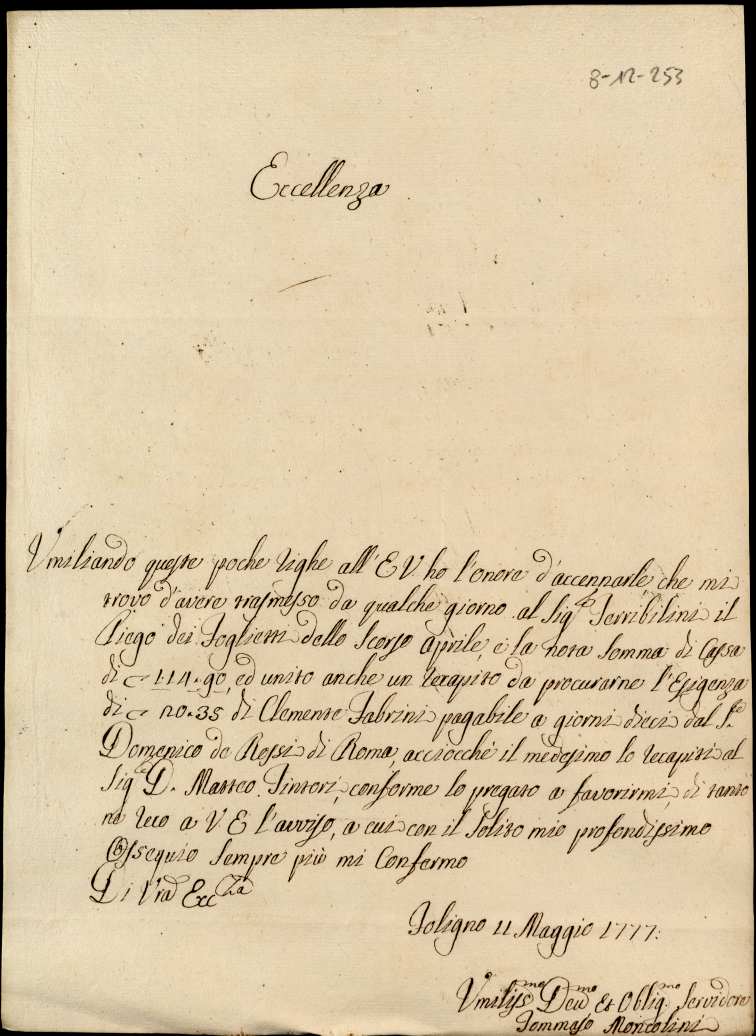 8-12-253
Eccellenza
Vmiliando queste poche righe all'E V. ho l'onore d'accennarle che mi
trovo d'avere trasmesso da qualche giorno al Sig.re Terribilini il
Piego dei Foglietti dello Scorso Aprile, e la nota Somma di Cassa
di 114.90, ed unito anche un recapito da procurarne l'Esigenza
di 20.35 di Clemente Fabrini pagabile a giorni dieci dal S.re
Domenico de Rossi di Roma, acciocchè il medesimo lo recapiti al
Sig.re D. Matteo Tintori, conforme lo pregato a favorirmi, di tanto
ne reco a V. E l'avviso, a cui con il Solito mio profondissimo
Ossequio Sempre più mi Confermo
Di Vra Ecc.za
Foligno 11 Maggio 1777:
Vmiliss.mo Dev.mo Et Oblig.mo Servidore
Tommaso